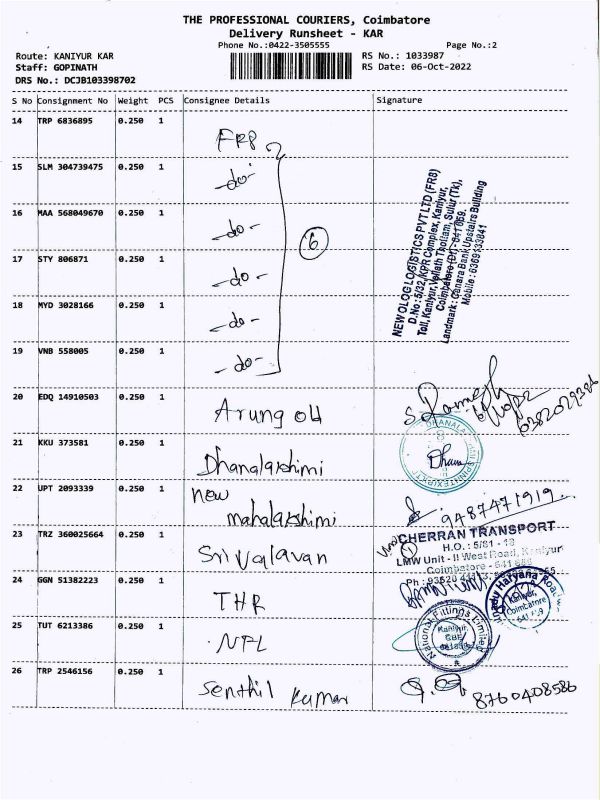 THE PROFESSIONAL COURIERS, Coimbatore
Delivery Runsheet - KAR
Phone No.:0422-3505555 Page No.:2
Route: KANIYUR KAR RS No.: 1033987
Staff: GOPINATH RS Date: 06-Oct-2022
DRS No.: DCJB103398702
S No Consignment No Weight PCS Consignee Details Signature
14 TRP 6836895 0.250 1 FR8
15 SLM 304739475 0.250 1 -do-
16 MAA 568049670 0.250 1 -do-
6
17 STY 806871 0.250 1 -do-
18 MYD 3028166 0.250 1 -do-
19 VNB 558005 0.250 1 -do-
NEW OLOG LOGISTICS PVT LTD (FR8)
D.No: 5/32, KPR Complex, Kaniyur,
Toll, Kaniyur, Vellath Thottam, Sulur (TK),
Coimbatore (DT) - 641 659.
Landmark: Canara Bank Upstairs Building
Mobile: 6369133841
20 EDQ 14910503 0.250 1 Arung OH S. Ramesh
21 KKU 373581 0.250 1 Dhanalakshimi Dhana
22 UPT 2093339 0.250 1 new
mahalakshimi 9487471919
23 TRZ 360025664 0.250 1 Sri Valavan
CHERRAN TRANSPORT
H.O. : 5/81 - 13
LMW Unit - II West Road, Kaniyur
Coimbatore - 641
24 GGN 51382223 0.250 1 THR
Haryana Road
Kaniyur,
Coimbatore
25 TUT 6213386 0.250 1 NFL
National Fittings Limited
Kaniyur
CBE
26 TRP 2546156 0.250 1 Senthil kumar 8760408586